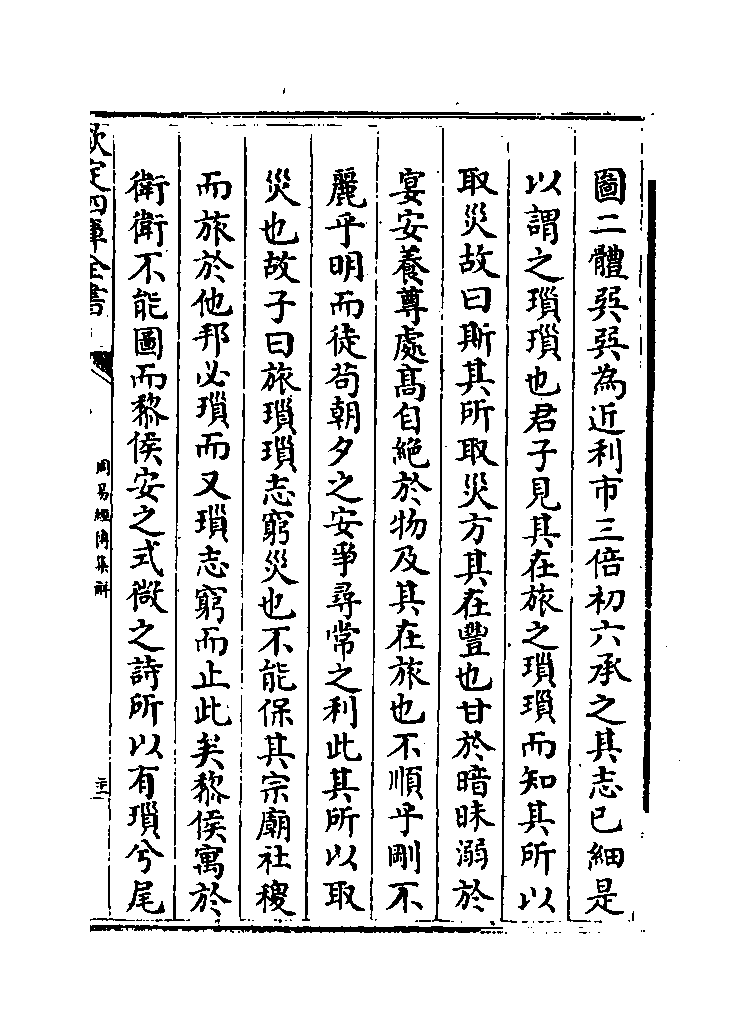 圖二體巽巽為近利市三倍初六承之其志已細是
以謂之瑣瑣也君子見其在旅之瑣瑣而知其所以
取災故曰斯其所取災方其在豐也甘於暗昧溺於
宴安養尊處髙自絕於物及其在旅也不順乎剛不
麗乎明而徒茍朝夕之安爭尋常之利此其所以取
災也故子曰旅瑣瑣志窮災也不能保其宗廟社稷
而旅於他邦必瑣而又瑣志窮而止此矣黎侯寓於
衛衛不能圖而黎侯安之式微之詩所以有瑣兮尾
欽定四庫全書
周易經傳集解